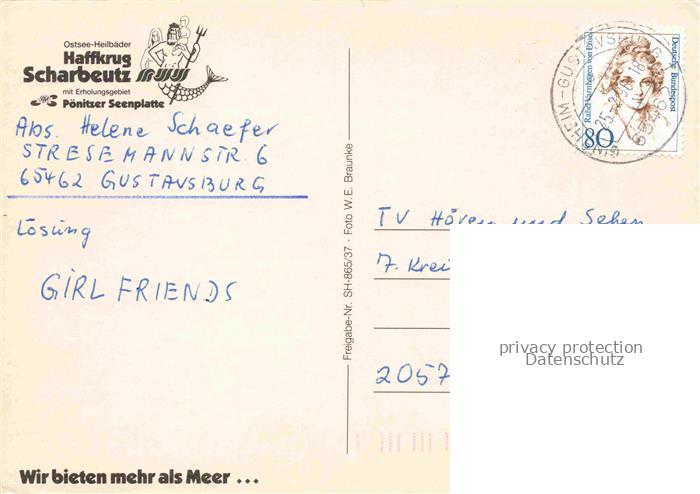 Ostsee-Heilbäder
Haffkrug
Scharbeutz
mit Erholungsgebiet
Pönitzer Seenplatte
Abs. Helene Schaefer
STRESEMANNSTR. 6
65462 GUSTAVSBURG
Lösung
GIRL FRIENDS
Wir bieten mehr als Meer ...
Freigabe-Nr. SH-865/37 · Foto W.E. Braunke
Deutsche Bundespost
Rahel Varnhagen von Ense
80
TV Hören und Sehen
7. Krei
2057
privacy protection
Datenschutz